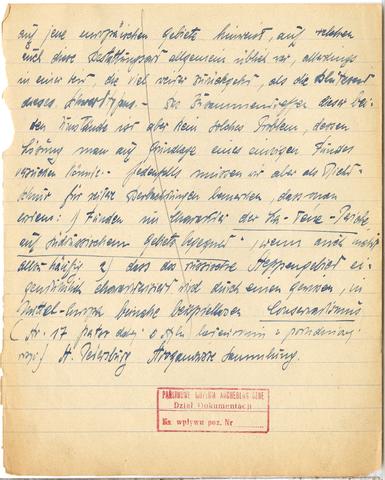 auf jene europäischen Gebiete hinweist, auf welchen
auch diese Bestattungsart allgemein üblich war, allerdings
in einer Zeit, die viel weiter zurückgeht, als die Blütezeit
dieses
Das Zusammentreffen dieser bei-
den Umstände ist aber kein solches Problem, dessen
Lösung man auf Grundlage eines einzigen Fundes
versuchen könnte. – Jedenfalls müssen wir aber als Richt-
schnur für weitere Betrachtungen bemerken, dass man
erstens: 1) Funden im Charakter der La-Tene-Periode
auf südrussischem Gebiete begegnet, wenn auch nicht
allzu häufig 2) dass das russische Steppengebiet ei-
gentümlich charakterisiert wird durch einen gewissen, in
Mittel-Europa beinahe beispiellosen Conservatismus
(Nr. 17
St. Petersburg Sammlung.
PAŃSTWOWE MUZEUM ARCHEOLOGICZNE
Dział Dokumentacji
Ks wpływu poz. Nr